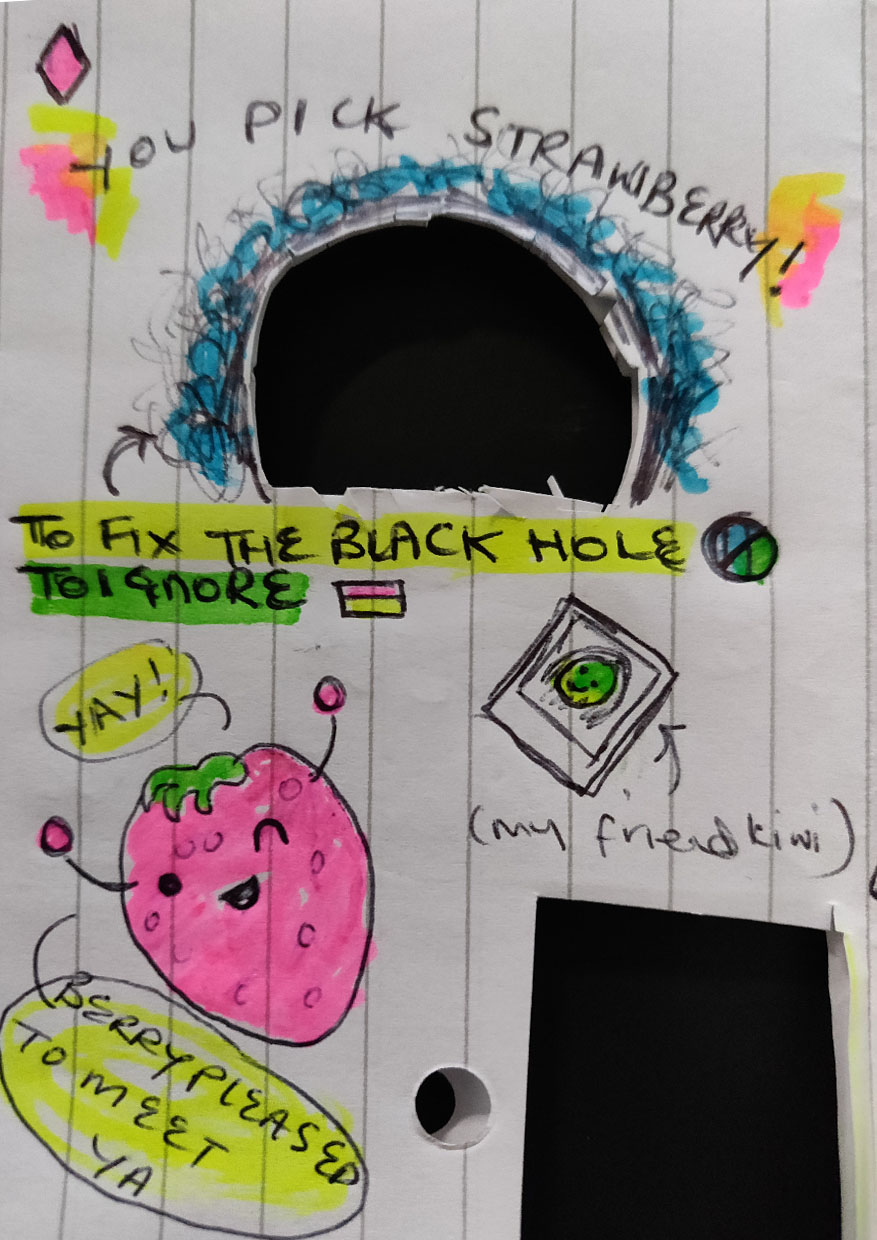 YOU PICK STRAWBERRY!
TO FIX THE BLACK HOLE
TO IGNORE
YAY!
(my friend kiwi)
BERRY PLEASED
TO MEET
YA